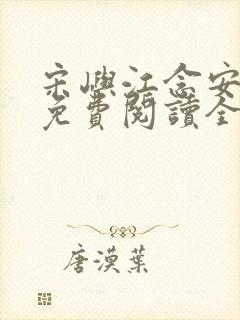 宋嶼江念安
免費閱讀全
唐漠葉